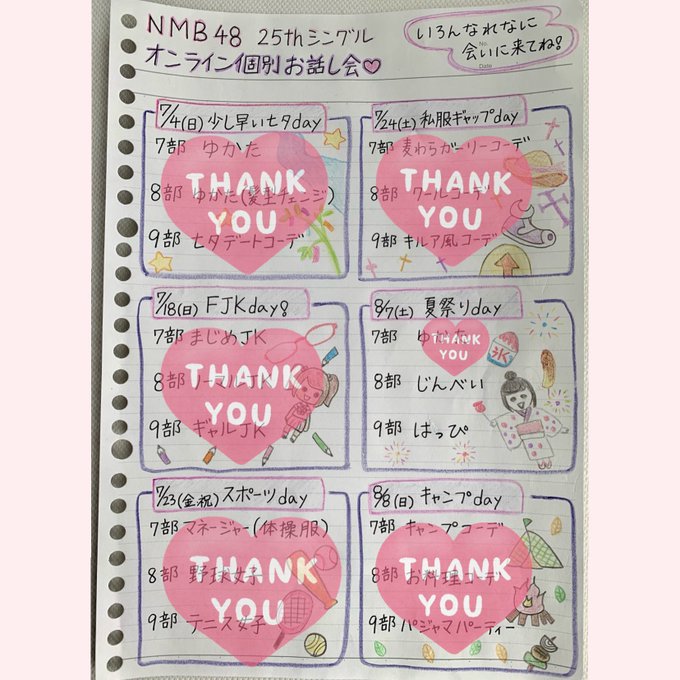 NMB48 25thシングル
オンライン個別お話し会♡
いろんなれなに
会いに来てね!
No.
Date
7/4(日)少し早い七夕day
7部 ゆかた
8部 ゆかた(髪型チェンジ)
9部 七夕デートコーデ
THANK
YOU
7/24(土)私服ギャップday
7部 麦わらガーリーコーデ
8部 クールコーデ
9部 キルア風コーデ
THANK
YOU
7/18(日)FJKday!
7部 まじめJK
8部 ノーマルJK
9部 ギャルJK
THANK
YOU
8/7(土)夏祭りday
7部 ゆかた
8部 じんべい
9部 はっぴ
THANK
YOU
氷
7/23(金祝)スポーツday
7部 マネージャー(体操服)
8部 野球女子
9部 テニス女子
THANK
YOU
8/8(日)キャンプday
7部 キャンプコーデ
8部 お料理コーデ
9部 パジャマパーティー
THANK
YOU